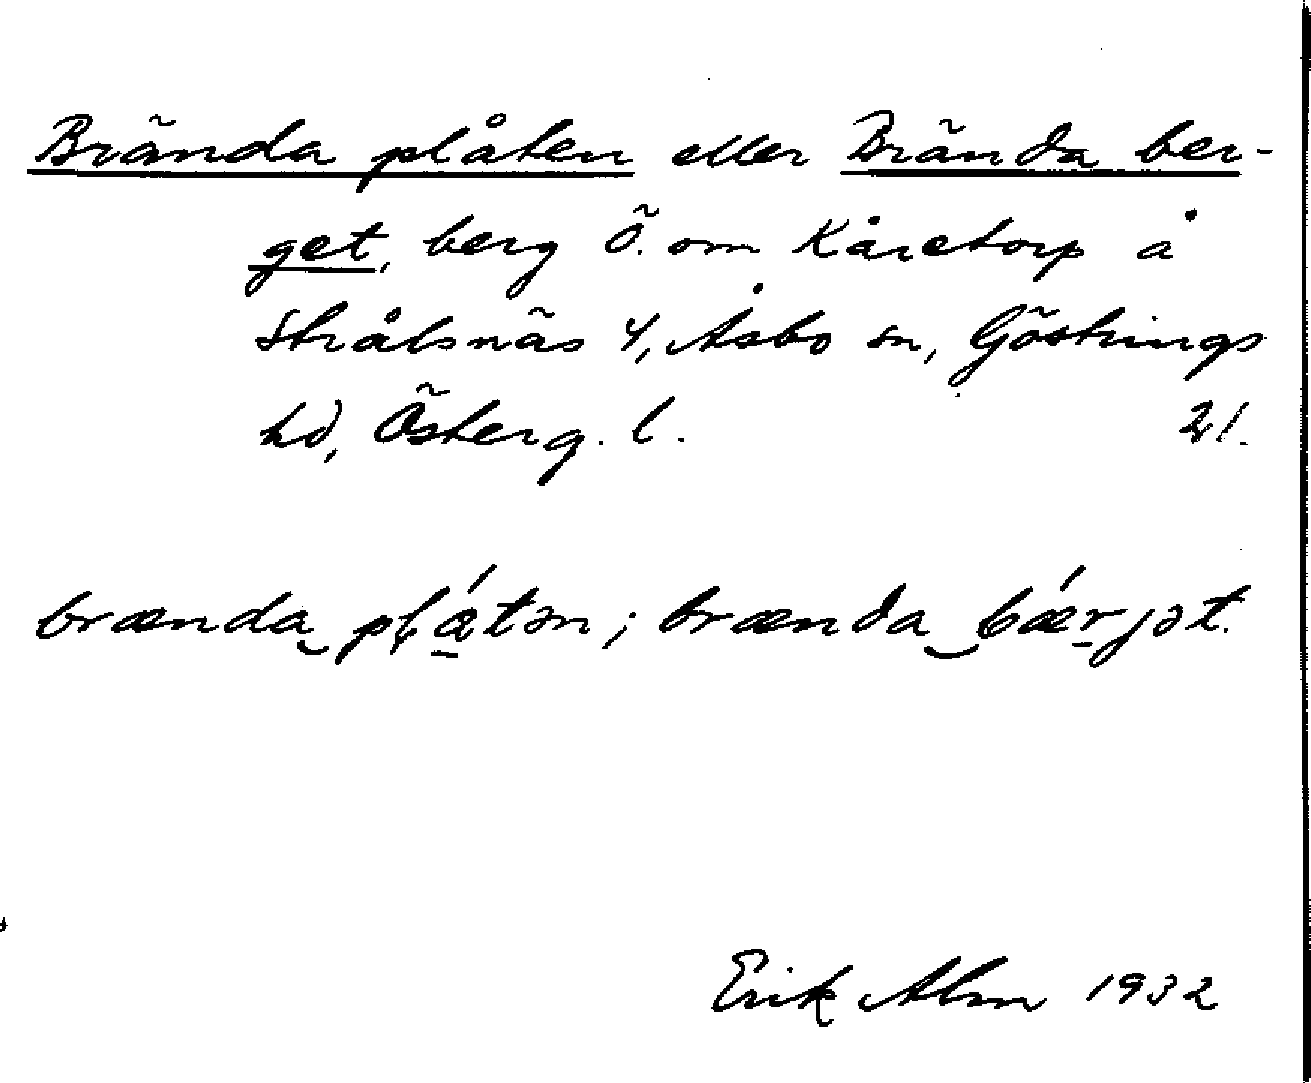 Brända plåten eller Brända ber-
get, berg Ö. om Kåretorp å
Strålsnäs 4, Åsbo sn, Göstrings
hd, Österg. l. 21.
brænda plátən; brænda bǽrjət.
Erik Alm 1932